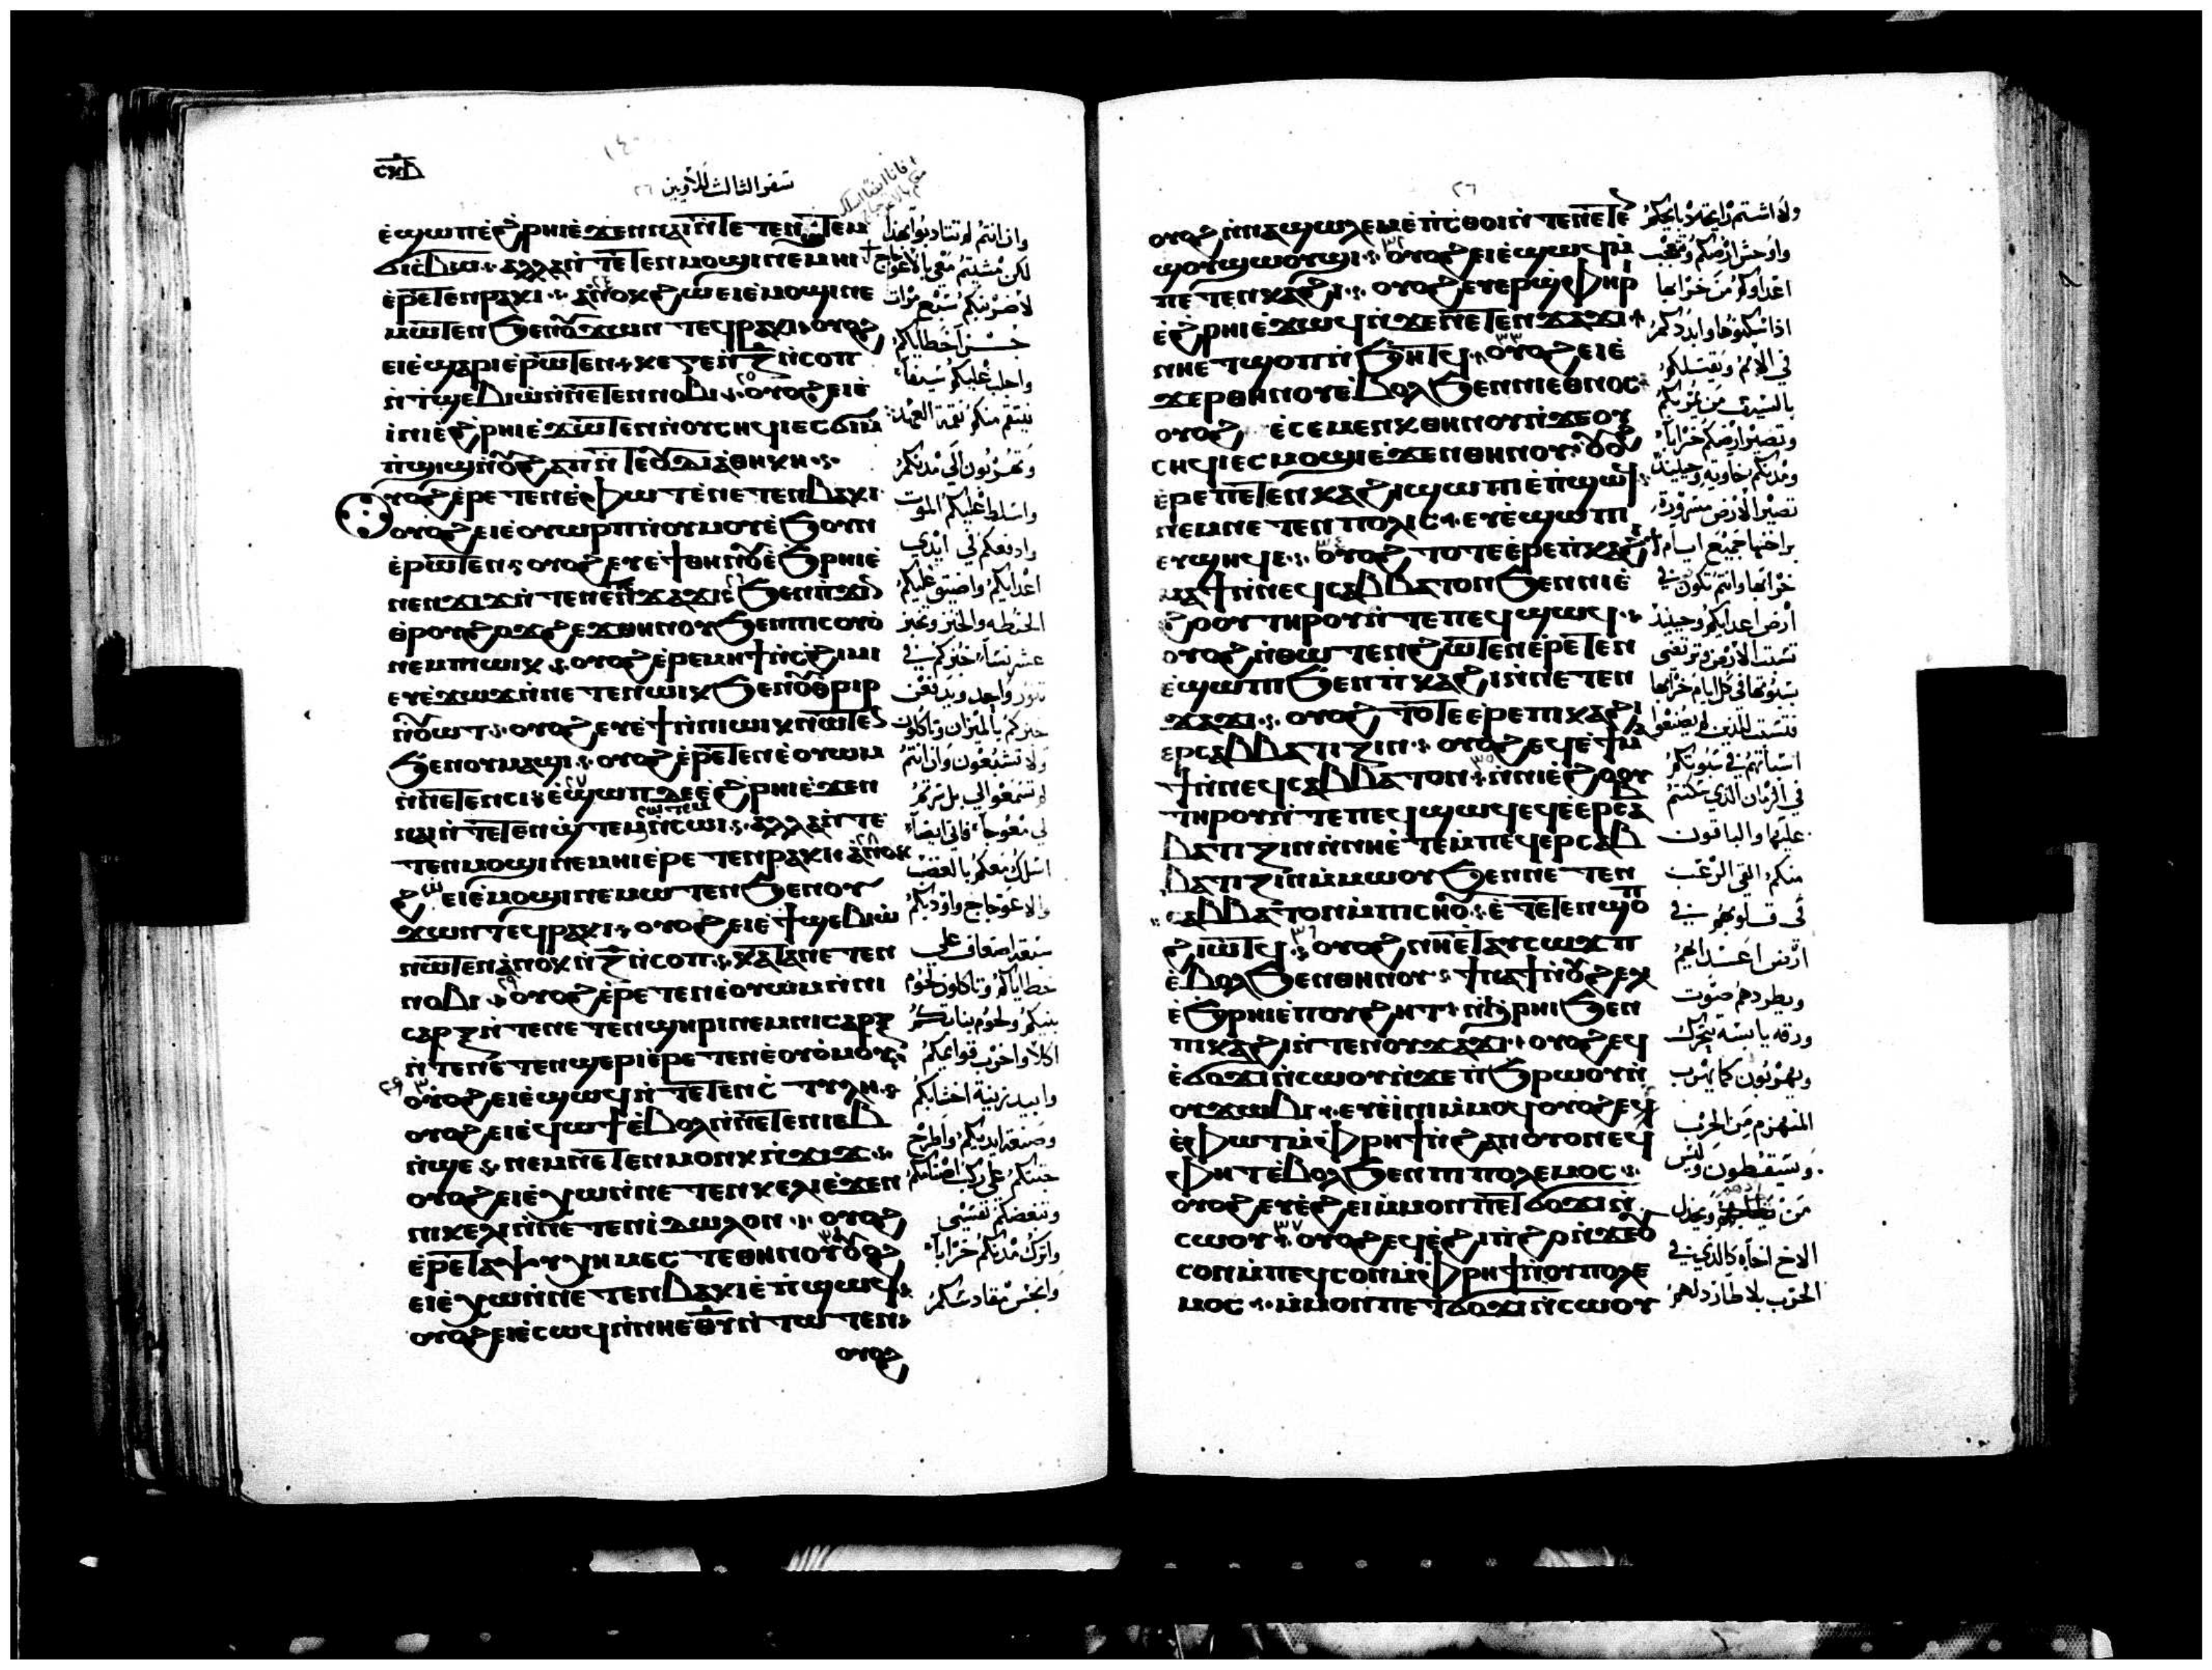 ⲥⲝⲇ
سفر الثالث للاويين
٢٦
ⲉϣⲱⲡ ⲉϩⲣⲏⲓ ⲉϫⲉⲛ ⲛⲁⲓ ⲛⲧⲉⲧⲉⲛ
ϭⲓⲥⲃⲱ ⲁⲗⲗⲁ ⲛⲧⲉⲧⲉⲛⲙⲟϣⲓ ⲛⲉⲙⲏⲓ
ⲉⲣⲉⲧⲉⲛⲣⲁⲕⲓ ⲁⲛⲟⲕ ϩⲱ ⲉⲓⲉⲙⲟϣⲓ ⲛⲉ
ⲙⲱⲧⲉⲛ ϧⲉⲛ ⲟⲩϫⲱⲛⲧ ⲉϥⲣⲁⲕⲓ ⲟⲩⲟϩ
ⲉⲓⲉϣⲁⲣⲓ ⲉⲣⲱⲧⲉⲛ ⲛⲍ ⲛⲥⲟⲡ
ⲛⲧϣⲉⲃⲓⲱ ⲛⲛⲉⲧⲉⲛⲛⲟⲃⲓ ⲟⲩⲟϩ ⲉⲓⲉ
ⲓⲛⲓ ⲉϩⲣⲏⲓ ⲉϫⲱⲧⲉⲛ ⲛⲟⲩⲥⲏϥⲓ ⲉⲥϭⲓⲙ
ⲡϣⲓϣ ⲛⲟⲩϩⲁⲡ ⲛⲧⲉ ⲟⲩⲇⲓⲁⲑⲏⲕⲏ
ⲟⲩⲟϩ ⲉⲣⲉⲧⲉⲛⲉⲫⲱⲧ ⲉⲛⲉⲧⲉⲛⲃⲁⲕⲓ
ⲟⲩⲟϩ ⲉⲓⲉⲟⲩⲱⲣⲡ ⲛⲟⲩⲙⲟⲩ ⲉϧⲟⲩⲛ
ⲉⲣⲱⲧⲉⲛ ⲟⲩⲟϩ ⲉⲩⲉϯ ⲑⲏⲛⲟⲩ ⲉϧⲣⲏⲓ ⲉ
ⲛⲉⲛϫⲓϫ ⲛⲧⲉⲛⲉⲧⲉⲛϫⲁϫⲓ ϧⲉⲛ ⲡϫⲓⲛ
ⲑⲣⲟⲩϩⲟϫϩⲉϫ ⲑⲏⲛⲟⲩ ϧⲉⲛ ⲡⲓⲥⲟⲩⲟ
ⲛⲉⲙ ⲡⲓⲱⲓⲕ ⲟⲩⲟϩ ⲉⲣⲉ ⲙⲏϯ ⲛⲥϩⲓⲙⲓ
ⲉⲩⲉϫⲱϫ ⲛⲛⲉⲧⲉⲛⲱⲓⲕ ϧⲉⲛ ⲟⲩⲑⲣⲓⲣ
ⲛⲟⲩⲱⲧ ⲟⲩⲟϩ ⲉⲩⲉϯ ⲛⲛⲓⲱⲓⲕ ⲛⲱⲧⲉⲛ
ϧⲉⲛ ⲟⲩⲙⲁϣⲓ ⲟⲩⲟϩ ⲉⲣⲉⲧⲉⲛⲉⲟⲩⲱⲙ
ⲛⲛⲉⲧⲉⲛⲥⲓ ⲉϣⲱⲡ ⲇⲉ ⲉϩⲣⲏⲓ ⲉϫⲉⲛ
ⲛⲁⲓ ⲛⲧⲉⲧⲉⲛϣⲧⲉⲙⲥⲱⲧⲉⲙ ⲛⲥⲱⲓ ⲁⲗⲗⲁ ⲛⲧⲉ
ⲧⲉⲛⲙⲟϣⲓ ⲛⲉⲙⲏⲓ ⲉⲣⲉⲧⲉⲛⲣⲁⲕⲓ ⲁⲛⲟⲕ
ϩⲱ ⲉⲓⲉⲙⲟϣⲓ ⲛⲉⲙⲱⲧⲉⲛ ϧⲉⲛ ⲟⲩ
ϫⲱⲛⲧ ⲉϥⲣⲁⲕⲓ ⲟⲩⲟϩ ⲉⲓⲉϯϣⲉⲃⲓⲱ
ⲛⲱⲧⲉⲛ ⲁⲛⲟⲕ ⲛⲍ ⲛⲥⲟⲡ ⲕⲁⲧⲁ ⲛⲉⲧⲉⲛ
ⲛⲟⲃⲓ ⲟⲩⲟϩ ⲉⲣⲉⲧⲉⲛⲉⲟⲩⲱⲙ ⲛⲛⲓ
ⲥⲁⲣⲝ ⲛⲧⲉⲛⲉⲧⲉⲛϣⲏⲣⲓ ⲛⲉⲙ ⲛⲓⲥⲁⲣⲝ
ⲛⲧⲉⲛⲉⲧⲉⲛϣⲉⲣⲓ ⲉⲣⲉⲧⲉⲛⲉⲟⲩⲟⲙⲟⲩ
ⲟⲩⲟϩ ⲉⲓⲉϣⲱϥ ⲛⲛⲉⲧⲉⲛⲥⲧⲩⲗⲏ
ⲟⲩⲟϩ ⲉⲓⲉϥⲱϯ ⲉⲃⲟⲗ ⲛⲛⲉⲧⲉⲛⲓⲉⲃ
ⲛϣⲉ ⲛⲉⲙ ⲛⲉⲧⲉⲛⲙⲟⲛⲕ ⲛϫⲓϫ
ⲟⲩⲟϩ ⲉⲓⲉⲭⲱ ⲛⲛⲉⲧⲉⲛⲕⲉⲗⲓ ⲉϫⲉⲛ
ⲛⲓⲕⲉⲗⲓ ⲛⲛⲉⲧⲉⲛⲓⲇⲱⲗⲟⲛ ⲟⲩⲟϩ
ⲉⲣⲉ ⲧⲁⲯⲩⲭⲏ ⲙⲉⲥⲧⲉ ⲑⲏⲛⲟⲩ ⲟⲩⲟϩ
ⲉⲓⲉⲭⲱ ⲛⲛⲉⲧⲉⲛⲃⲁⲕⲓ ⲉⲡϣⲱϥ
ⲟⲩⲟϩ ⲉⲓⲉⲥⲱϥ ⲛⲛⲏⲉⲑⲩ ⲛⲧⲱⲧⲉⲛ
ⲟⲩⲟϩ
وان انتم لم تتادبوا بهذا
لكن مشيتم معي بالاعوجاج
لاضربنكم سبع مرات
خطاياكم
واجلب عليكم سيفاً
ينتقم منكم نقمة العهد
وتهربون الى مدنكم
واسلط عليكم الموت
وادفعكم في ايدي
اعدايكم واضيق عليكم
الحنطه والخبز وتخبز
عشر نساء خبزكم في
تنور واحد ويدفعن
خبزكم بالميزان وتاكلون
ولا تشبعون وان انتم
لم تسمعوا لي بل سرتم
لي معوجاً فاني ايضاً
اسلك معكم بالغضب
والاعوجاج واودبكم
سبعة اضعاف على
خطاياكم وتاكلون لحوم
بنيكم ولحوم بناتكم
اكلاً واخرب قوايمكم
وابيد
وصنعة ايديكم واطرح
جثثكم على
وتبغضكم نفسي
واترك مدنكم خراباً
وانجس مقادسكم
٢٦
ⲟⲩⲟϩ ⲛⲛⲁϣⲱⲗⲉⲙ ⲉⲡⲥⲑⲟⲓ ⲛⲧⲉⲛⲉⲧⲉ
ϣⲟⲩϣⲱⲟⲩϣⲓ ⲟⲩⲟϩ ⲉⲓⲉϣⲱϥ ⲙ
ⲡⲉⲧⲉⲛⲕⲁϩⲓ ⲟⲩⲟϩ ⲉⲩⲉⲣϣⲫⲏⲣⲓ
ⲉϩⲣⲏⲓ ⲉϫⲱϥ ⲛϫⲉ ⲛⲉⲧⲉⲛϫⲁϫⲓ
ⲛⲏⲉⲧϣⲟⲡ ⲛϧⲏⲧϥ ⲟⲩⲟϩ ⲉⲓⲉ
ϫⲉⲣ ⲑⲏⲛⲟⲩ ⲉⲃⲟⲗ ϧⲉⲛ ⲛⲓⲉⲑⲛⲟⲥ
ⲟⲩⲟϩ ⲉⲥⲉⲙⲉⲛⲕ ⲑⲏⲛⲟⲩ ⲛϫⲉ ⲟⲩ
ⲥⲏϥⲓ ⲉⲥⲙⲟϣⲓ ⲉϫⲉⲛ ⲑⲏⲛⲟⲩ ⲟⲩⲟϩ
ⲉⲣⲉ ⲡⲉⲧⲉⲛⲕⲁϩⲓ ϣⲱⲡⲓ ⲉⲡϣⲱϥ
ⲛⲉⲙ ⲛⲉⲧⲉⲛⲡⲟⲗⲓⲥ ⲉⲩⲉϣⲱⲡⲓ
ⲉⲩϣⲏϥⲉ ⲟⲩⲟϩ ⲧⲟⲧⲉ ⲉⲣⲉ ⲡⲕⲁϩⲓ
ⲙⲁϯ ⲛⲛⲉϥⲥⲁⲃⲃⲁⲧⲟⲛ ϧⲉⲛ ⲛⲓⲉ
ϩⲟⲟⲩ ⲧⲏⲣⲟⲩ ⲛⲧⲉ ⲡⲉϥϣⲱϥ
ⲟⲩⲟϩ ⲛⲑⲱⲧⲉⲛ ϩⲱⲧⲉⲛ ⲉⲣⲉⲧⲉⲛ
ⲉϣⲱⲡⲓ ϧⲉⲛ ⲡⲕⲁϩⲓ ⲛⲛⲉⲧⲉⲛ
ϫⲁϫⲓ ⲟⲩⲟϩ ⲧⲟⲧⲉ ⲉⲣⲉ ⲡⲓⲕⲁϩⲓ
ⲉⲣⲥⲁⲃⲃⲁⲧⲓⲍⲓⲛ ⲟⲩⲟϩ ⲉϥⲉϯⲙⲁ
ϯ ⲛⲛⲉϥⲥⲁⲃⲃⲁⲧⲟⲛ ⲛⲛⲓⲉϩⲟⲟⲩ
ⲧⲏⲣⲟⲩ ⲛⲧⲉ ⲡⲉϥϣⲱϥ ⲉϥⲉⲉⲣⲥⲁⲃ
ⲃⲁⲧⲓⲍⲓⲛ ⲛⲛⲏⲉⲧⲉⲙⲡⲉϥⲉⲣⲥⲁⲃ
ⲃⲁⲧⲓⲍⲓⲛ ⲙⲙⲱⲟⲩ ϧⲉⲛ ⲛⲉⲧⲉⲛ
ⲥⲁⲃⲃⲁⲧⲟⲛ ⲙⲡⲓⲥⲛⲟⲩ ⲉⲧⲉⲧⲉⲛϣⲟⲡ
ϩⲓⲱⲧϥ ⲟⲩⲟϩ ⲛⲏⲉⲧⲁⲩⲥⲱϫⲡ
ⲉⲃⲟⲗ ϧⲉⲛ ⲑⲏⲛⲟⲩ ϯⲛⲁϯ ⲛⲟⲩϩⲉⲗ
ⲉϧⲣⲏⲓ ⲉⲡⲟⲩϩⲏⲧ ⲛϧⲣⲏⲓ ϧⲉⲛ
ⲡⲓⲕⲁϩⲓ ⲛⲧⲉⲛⲟⲩϫⲁϫⲓ ⲟⲩⲟϩ ⲉϥ
ⲉϭⲟϫⲓ ⲛⲥⲱⲟⲩ ⲛϫⲉ ⲡϧⲣⲱⲟⲩ ⲛ
ⲟⲩϫⲱⲃⲓ ⲉⲩⲉⲓⲛⲓ ⲙⲙⲟϥ ⲟⲩⲟϩ ⲉⲩ
ⲉⲫⲱⲧ ⲙⲫⲣⲏϯ ⲛϩⲁⲛⲟⲩⲟⲛ ⲉⲩ
ⲫⲏⲧ ⲉⲃⲟⲗ ϧⲉⲛ ⲡⲓⲡⲟⲗⲉⲙⲟⲥ
ⲟⲩⲟϩ ⲉⲩⲉϩⲉⲓ ⲙⲙⲟⲛ ⲡⲉⲧϭⲟϫⲓ ⲛ
ⲥⲱⲟⲩ ⲟⲩⲟϩ ⲉϥⲉϩⲓⲡϩⲟ ⲛϫⲉ ⲟⲩ
ⲥⲟⲛ ⲙⲡⲉϥⲥⲟⲛ ⲙⲫⲣⲏϯ ⲛⲟⲩⲡⲟⲗⲉ
ⲙⲟⲥ ⲙⲙⲟⲛ ⲡⲉⲧϭⲟϫⲓ ⲛⲥⲱⲟⲩ
ولا اشتم رايحة ذبايحكم
واوحش ارضكم وتعجب
اعداوكم من خرابها
اذا سكنوها وابددكم
في الامم ويقتلكم
بالسيف من يمر بكم
وتصير ارضكم خراباً
ومدنكم خاوية وحينيذ
تصير الارض مسرورة
براحتها جميع ايام
خرابها وانتم تكون في
ارض اعدايكم وحينيذ
تسبت الارض وترتضى
بسبوتها في كل ايام خرابها
فتسبت الذين لم يصنعوا
اسباتهم في سبوتكم
في الزمان الذي سكنتم
عليها والباقون
منكم القي الرعب
في قلوبهم في
ارض اعدايهم
ويطردهم صوت
ورقه يابسة تتحرك
ويهربون كما يهرب
المنهزم من الحرب
ويسقطون وليس
من ويخذل
الاخ اخاه كالذي في
الحرب بلا طارد لهم